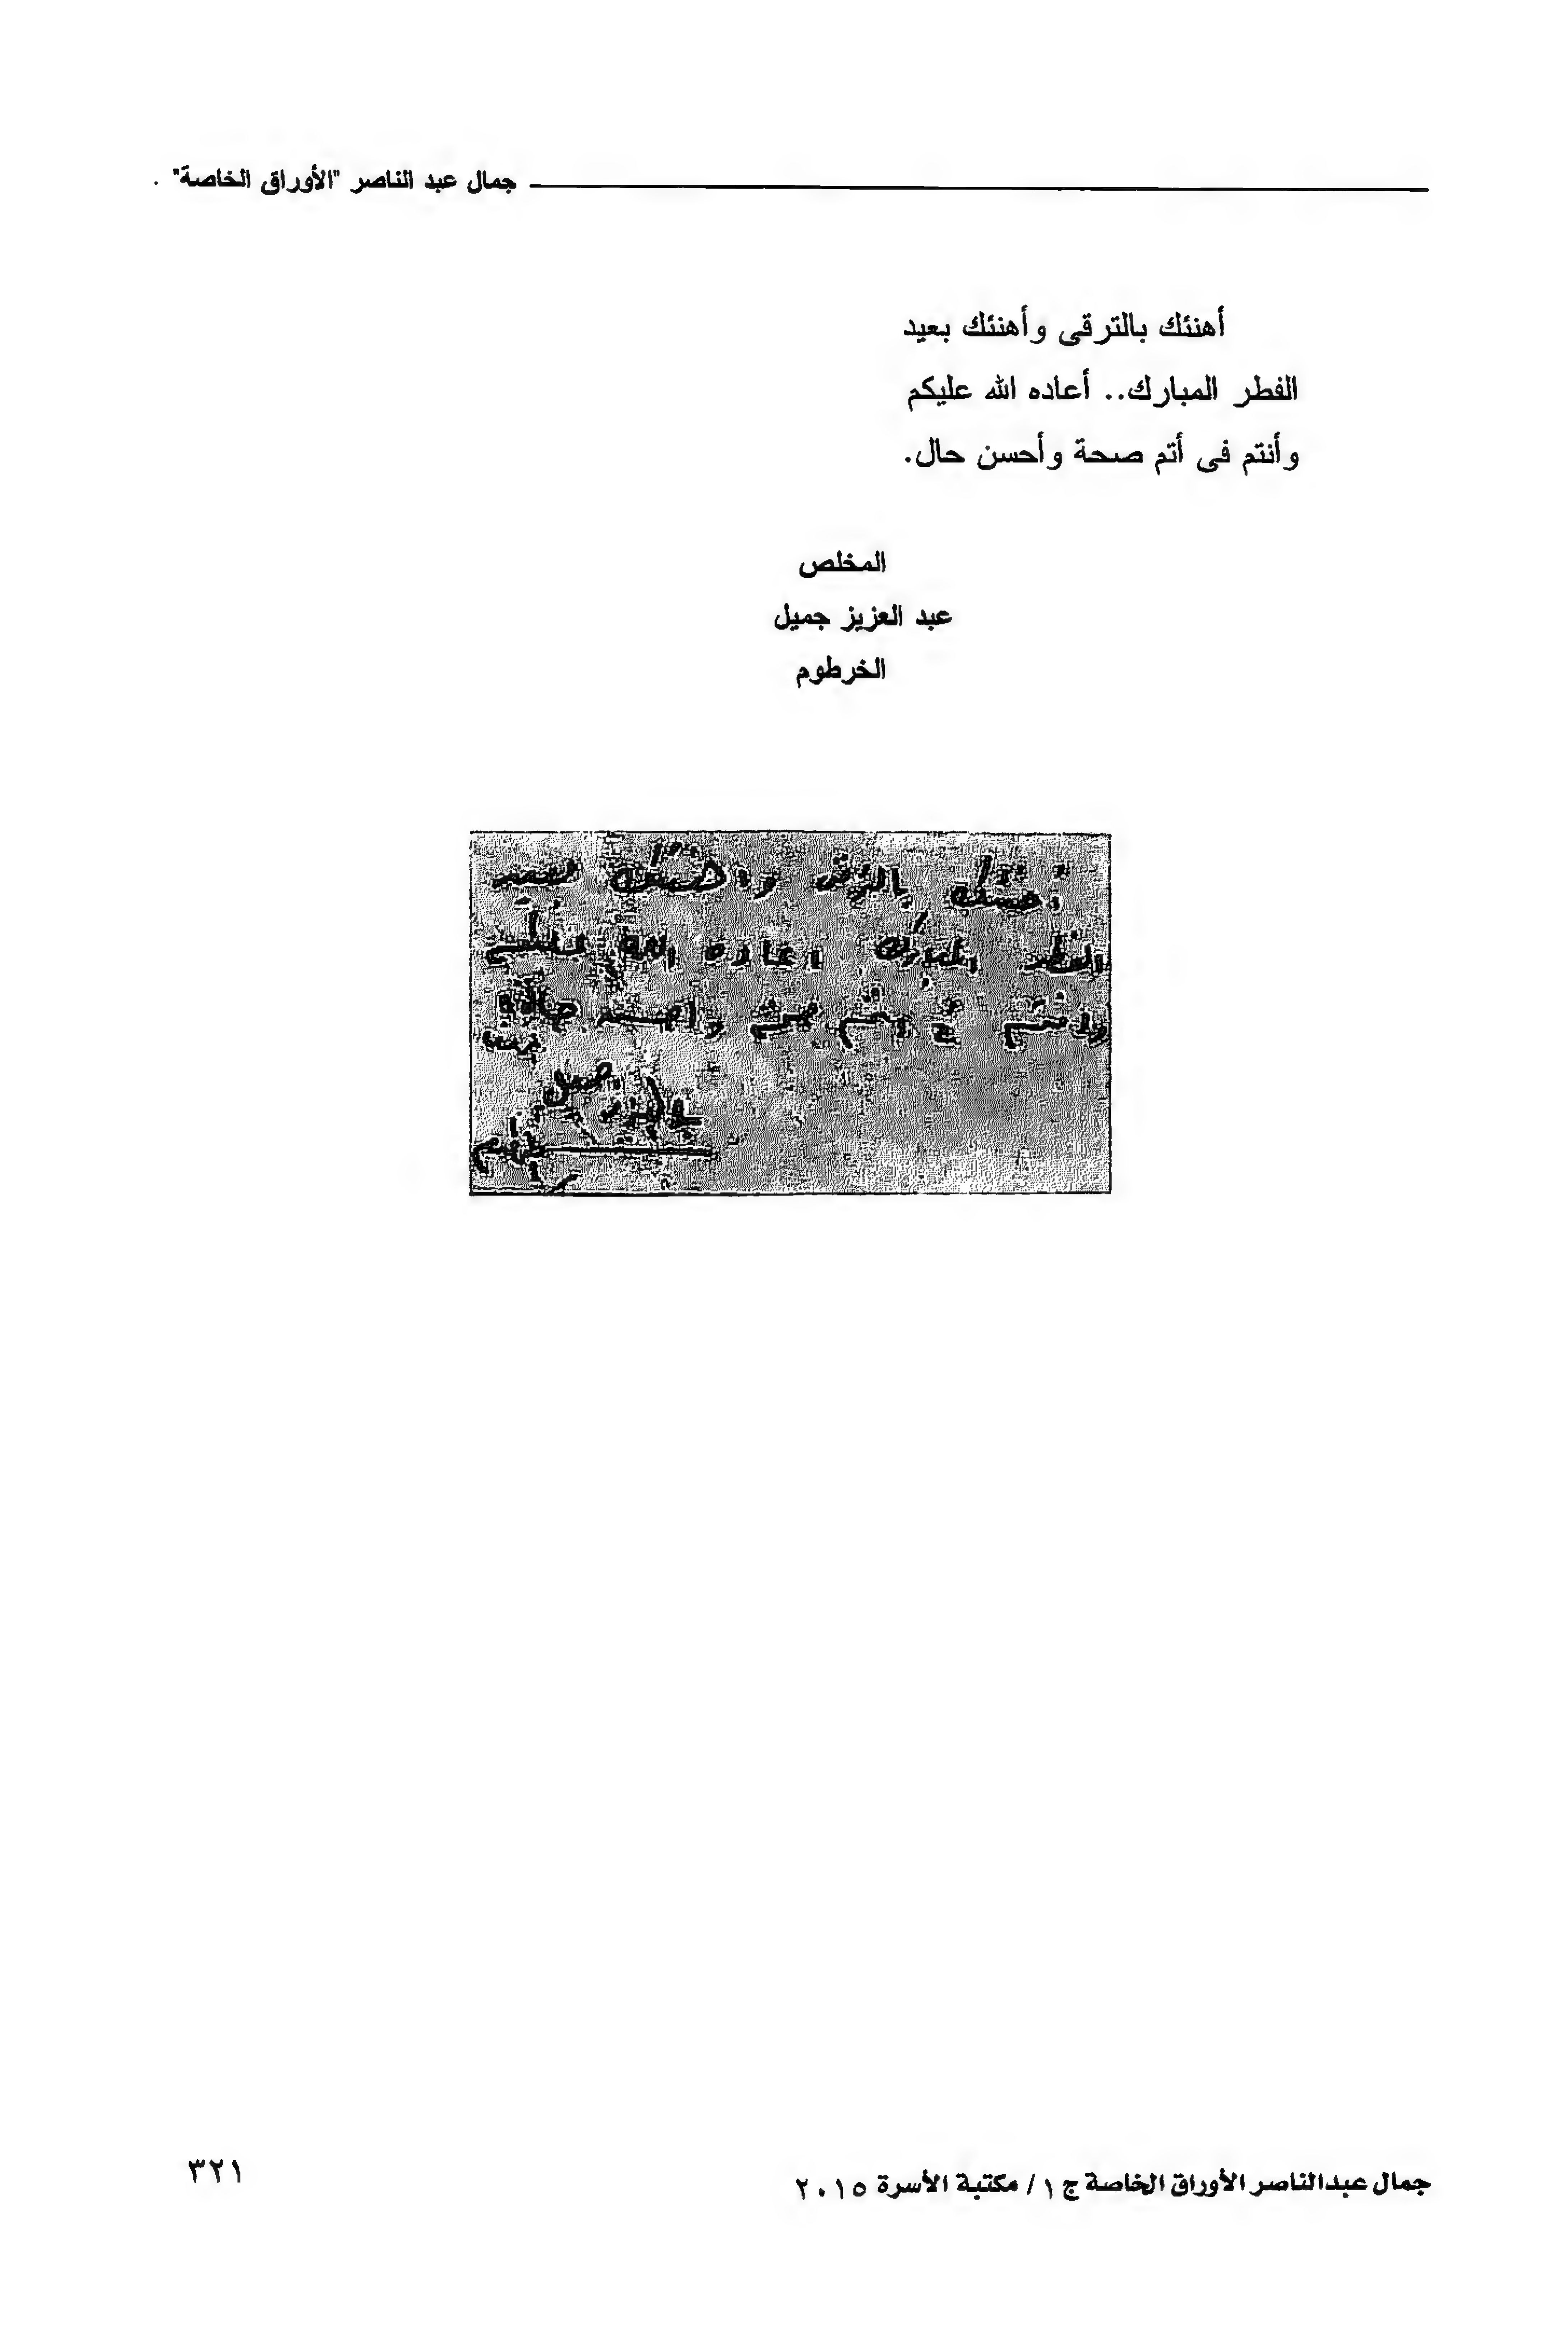 جمال عبد الناصر "الأوراق الخاصة" .
أهنئك بالترقى وأهنئك بعيد
الفطر المبارك.. أعاده الله عليكم
وأنتم فى أتم صحة وأحسن حال.
المخلص
عبد العزيز جميل
الخرطوم
أهنئك بالترقى وأهنئك بعيد
الفطر المبارك أعاده الله عليكم
وأنتم فى أتم صحة وأحسن حال
جمال عبدالناصر الأوراق الخاصة ج ١ / مكتبة الأسرة ٢٠١٥
٣٢١